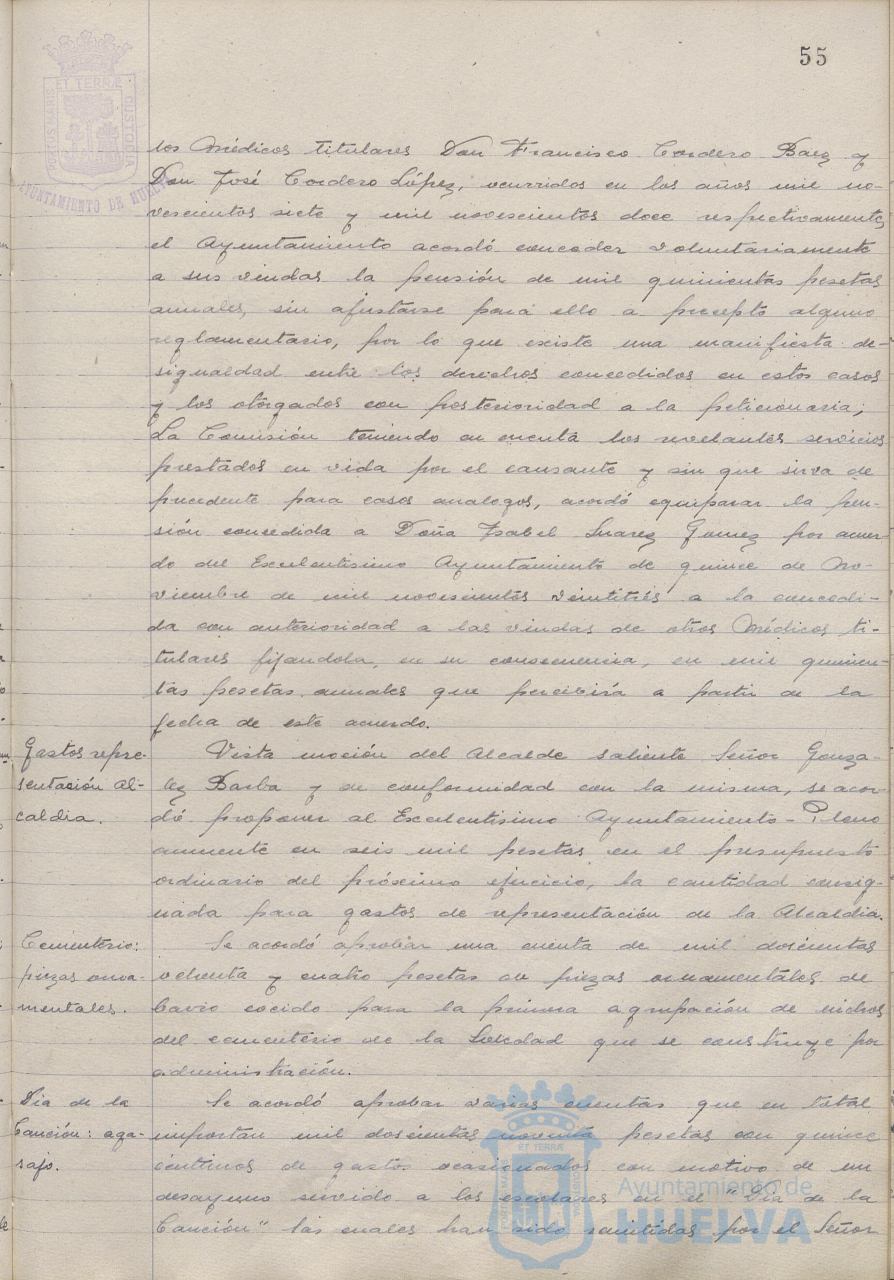 55
PORTUS MARIS ET TERRÆ CUSTODIA
AYUNTAMIENTO DE HUELVA
los Médicos titulares Don Francisco Cordero Baez y
Don José Cordero López, ocurridos en los años mil no-
vescientos siete y mil novescientos doce respectivamente,
el Ayuntamiento acordó conceder voluntariamente
a sus viudas la pensión de mil quinientas pesetas
anuales, sin ajustarse para ello a precepto alguno
reglamentario, por lo que existe una manifiesta de-
sigualdad entre los derechos concedidos en estos casos
y los otorgados con posterioridad a la peticionaria;
La Comisión teniendo en cuenta los relevantes servicios
prestados en vida por el causante y sin que sirva de
precedente para casos analogos, acordó equiparar la pen-
sión concedida a Doña Isabel Suarez Gomez por acuer-
do del Excelentisimo Ayuntamiento de quince de No-
viembre de mil novescientos veintitrés a la concedi-
da con anterioridad a las viudas de otros Médicos ti-
tulares fijandola, en su consecuencia, en mil quinien-
tas pesetas anuales que percibirá a partir de la
fecha de este acuerdo.
Gastos repre-
sentación Al-
caldia.
Vista moción del Alcalde saliente Señor Gonza-
lez Barba y de conformidad con la misma, se acor-
dó proponer al Excelentisimo Ayuntamiento-Pleno
aumente en seis mil pesetas en el presupuesto
ordinario del próximo ejercicio, la cantidad consig-
nada para gastos de representación de la Alcaldia.
Cementerio:
piezas orna-
mentales.
Se acordó aprobar una cuenta de mil doscientas
y cuatro pesetas de piezas ornamentales de
barro cocido para la primera agrupación de nichos
del cementerio de la Soledad que se construye por
administración.
Dia de la
Canción: aga-
sajo.
Se acordó aprobar varias cuentas que en total
importan mil doscientas noventa pesetas con quince
centimos de gastos ocasionados con motivo de un
desayuno servido a los escolares en el "Dia de la
Canción" las cuales han sido remitidas por el Señor
Ayuntamiento de
HUELVA